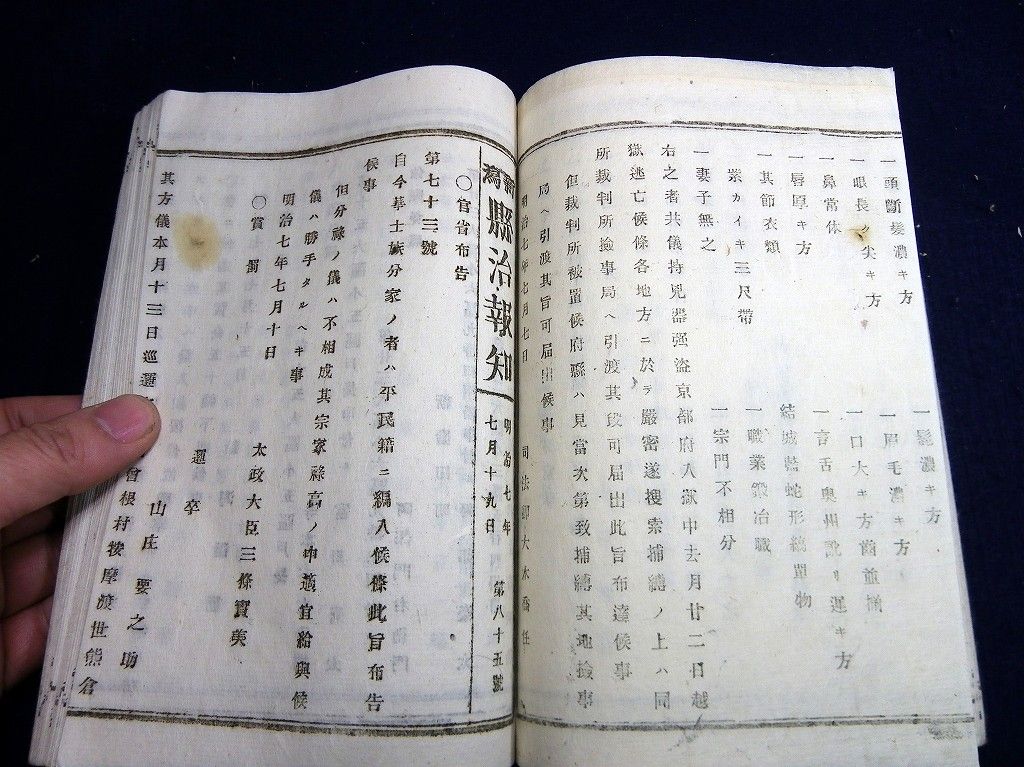 一頭斷髮濃キ方
一鬚濃キ方
一眼長ク尖キ方
一眉毛濃キ方
一鼻常体
一口大キ方齒並揃
一唇厚キ方
一言舌奥州訛リ遲キ方
一其節衣類
結城藍蛇形縞單物
紫カイキ三尺帶
一職業鍛冶職
一妻子無之
一宗門不相分
右之者共儀持兇器强盜京都府入獄中去月廿二日越
獄逃亡候條各地方ニ於テ嚴密遂搜索捕縛ノ上ハ同
所裁判所撿事局ヘ引渡其段可届出此旨布達候事
但裁判所被置候府縣ハ見當次第致捕縛其地撿事
局ヘ引渡其旨可届出候事
明治七年七月七日 司法卿大木喬任
新潟縣治報知 明治七年七月十九日 第八十五號
第七十三號
〇官省布告
自今華士族分家ノ者ハ平民籍ニ編入候條此旨布告
候事
但分祿ノ儀ハ不相成其宗家祿高ノ中適宜給與候
儀ハ勝手タルヘキ事
明治七年七月十日 太政大臣三條實美
〇賞
邏卒 山庄要之助
其方儀本月十三日巡邏 曾根村按摩渡世熊倉